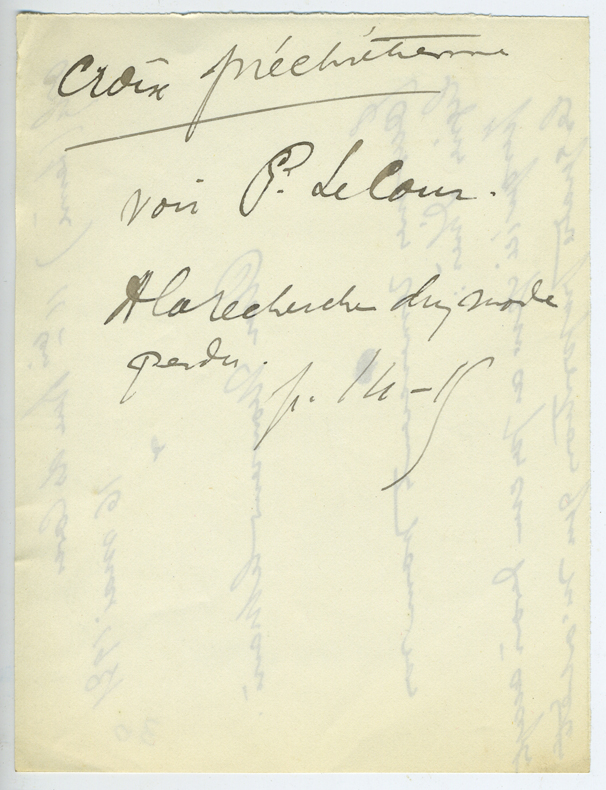 Croix préchrétienne
voir P. Le Cour.
A la recherche d'un monde
perdu.
p. 14-15